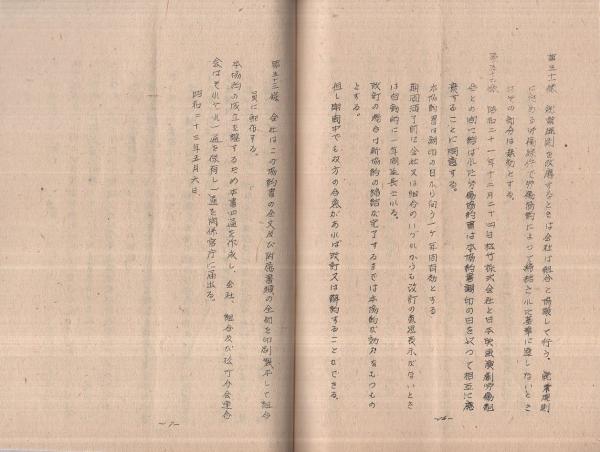 第五十一條 就業規則を改廃するときは会社は組合と協議して行う、就業規則
に定める労働條件で労働協約によって締結された基準に達しないとき
はその部分は無効とする。
第五十二條 昭和二十一年十二月二十四日松竹株式会社と日本映画演劇労働組
合との間に締結した労働協約書は本協約書調印の日を以って相互に廃
棄することに同意する。
本協約書は調印の日から向う一ヶ年間有効とする
期間満了前に会社又は組合のいづれからも改訂の意思表示がないとき
は自動的に一年間延長される。
改訂の場合は新協約の締結が完了するまでは本協約は効力をもつもの
とする。
但し期間中でも双方の合意があれば改訂又は解約することができる。
-6-
第五十三條 会社はこの協約書の全文及び附属書類の全部を印刷製本して組合
員に配布する。
本協約の成立を証するため本書四通を作成し、会社、組合及び松竹分会連合
会はそれぞれ一通を保有し一通を関係官庁に届出る。
昭和二十三年五月六日
-7-